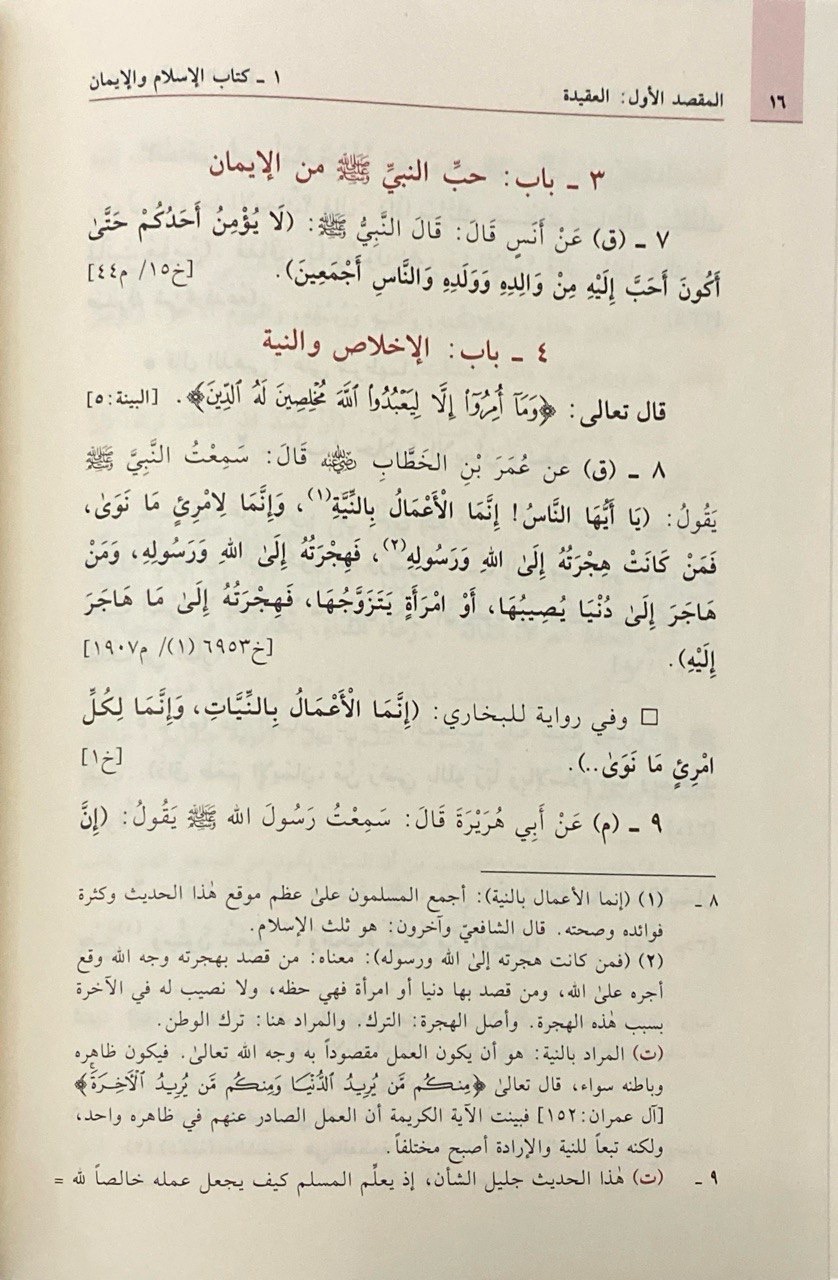 ١٦
المقصد الأول: العقيدة
١ ـ كتاب الإسلام والإيمان
٣ ـ باب: حبِّ النبيِّ ﷺ من الإيمان
٧ ـ (ق) عَنْ أَنَسٍ قَالَ: قَالَ النَّبِيُّ ﷺ: (لَا يُؤْمِنُ أَحَدُكُمْ حَتَّىٰ
أَكُونَ أَحَبَّ إِلَيْهِ مِنْ وَالِدِهِ وَوَلَدِهِ وَالنَّاسِ أَجْمَعِينَ). [خ١٥/ م٤٤]
٤ ـ باب: الإخلاص والنية
قال تعالى: ﴿وَمَآ أُمِرُوٓا۟ إِلَّا لِيَعْبُدُوا۟ ٱللَّهَ مُخْلِصِينَ لَهُ ٱلدِّينَ﴾. [البينة:٥]
٨ ـ (ق) عن عُمَرَ بْنِ الخَطَّابِ رضي الله عنه قَالَ: سَمِعْتُ النَّبِيَّ ﷺ
يَقُولُ: (يَا أَيُّهَا النَّاسُ! إِنَّمَا الْأَعْمَالُ بِالنِّيَّةِ(١)، وَإِنَّمَا لِامْرِئٍ مَا نَوَىٰ،
فَمَنْ كَانَتْ هِجْرَتُهُ إِلَىٰ اللهِ وَرَسُولِهِ(٢)، فَهِجْرَتُهُ إِلَىٰ اللهِ وَرَسُولِهِ، وَمَنْ
هَاجَرَ إِلَىٰ دُنْيَا يُصِيبُهَا، أَوْ امْرَأَةٍ يَتَزَوَّجُهَا، فَهِجْرَتُهُ إِلَىٰ مَا هَاجَرَ
إِلَيْهِ). [خ٦٩٥٣ (١)/ م١٩٠٧]
□ وفي رواية للبخاري: (إِنَّمَا الْأَعْمَالُ بِالنِّيَّاتِ، وَإِنَّمَا لِكُلِّ
امْرِئٍ مَا نَوَىٰ..). [خ١]
٩ ـ (م) عَنْ أَبِي هُرَيْرَةَ قَالَ: سَمِعْتُ رَسُولَ الله ﷺ يَقُولُ: (إِنَّ
٨ ـ (١) (إنما الأعمال بالنية): أجمع المسلمون علىٰ عظم موقع هٰذا الحديث وكثرة
فوائده وصحته. قال الشافعيّ وآخرون: هو ثلث الإسلام.
(٢) (فمن كانت هجرته إلىٰ الله ورسوله): معناه: من قصد بهجرته وجه الله وقع
أجره علىٰ الله، ومن قصد بها دنيا أو امرأة فهي حظه، ولا نصيب له في الآخرة
بسبب هٰذه الهجرة. وأصل الهجرة: الترك. والمراد هنا: ترك الوطن.
(ت) المراد بالنية: هو أن يكون العمل مقصوداً به وجه الله تعالىٰ. فيكون ظاهره
وباطنه سواء، قال تعالىٰ ﴿مِنكُم مَّن يُرِيدُ ٱلدُّنْيَا وَمِنكُم مَّن يُرِيدُ ٱلْآخِرَةَۚ﴾
[آل عمران:١٥٢] فبينت الآية الكريمة أن العمل الصادر عنهم في ظاهره واحد،
ولكنه تبعاً للنية والإرادة أصبح مختلفاً.
٩ ـ (ت) هٰذا الحديث جليل الشأن، إذ يعلِّم المسلم كيف يجعل عمله خالصاً لله =